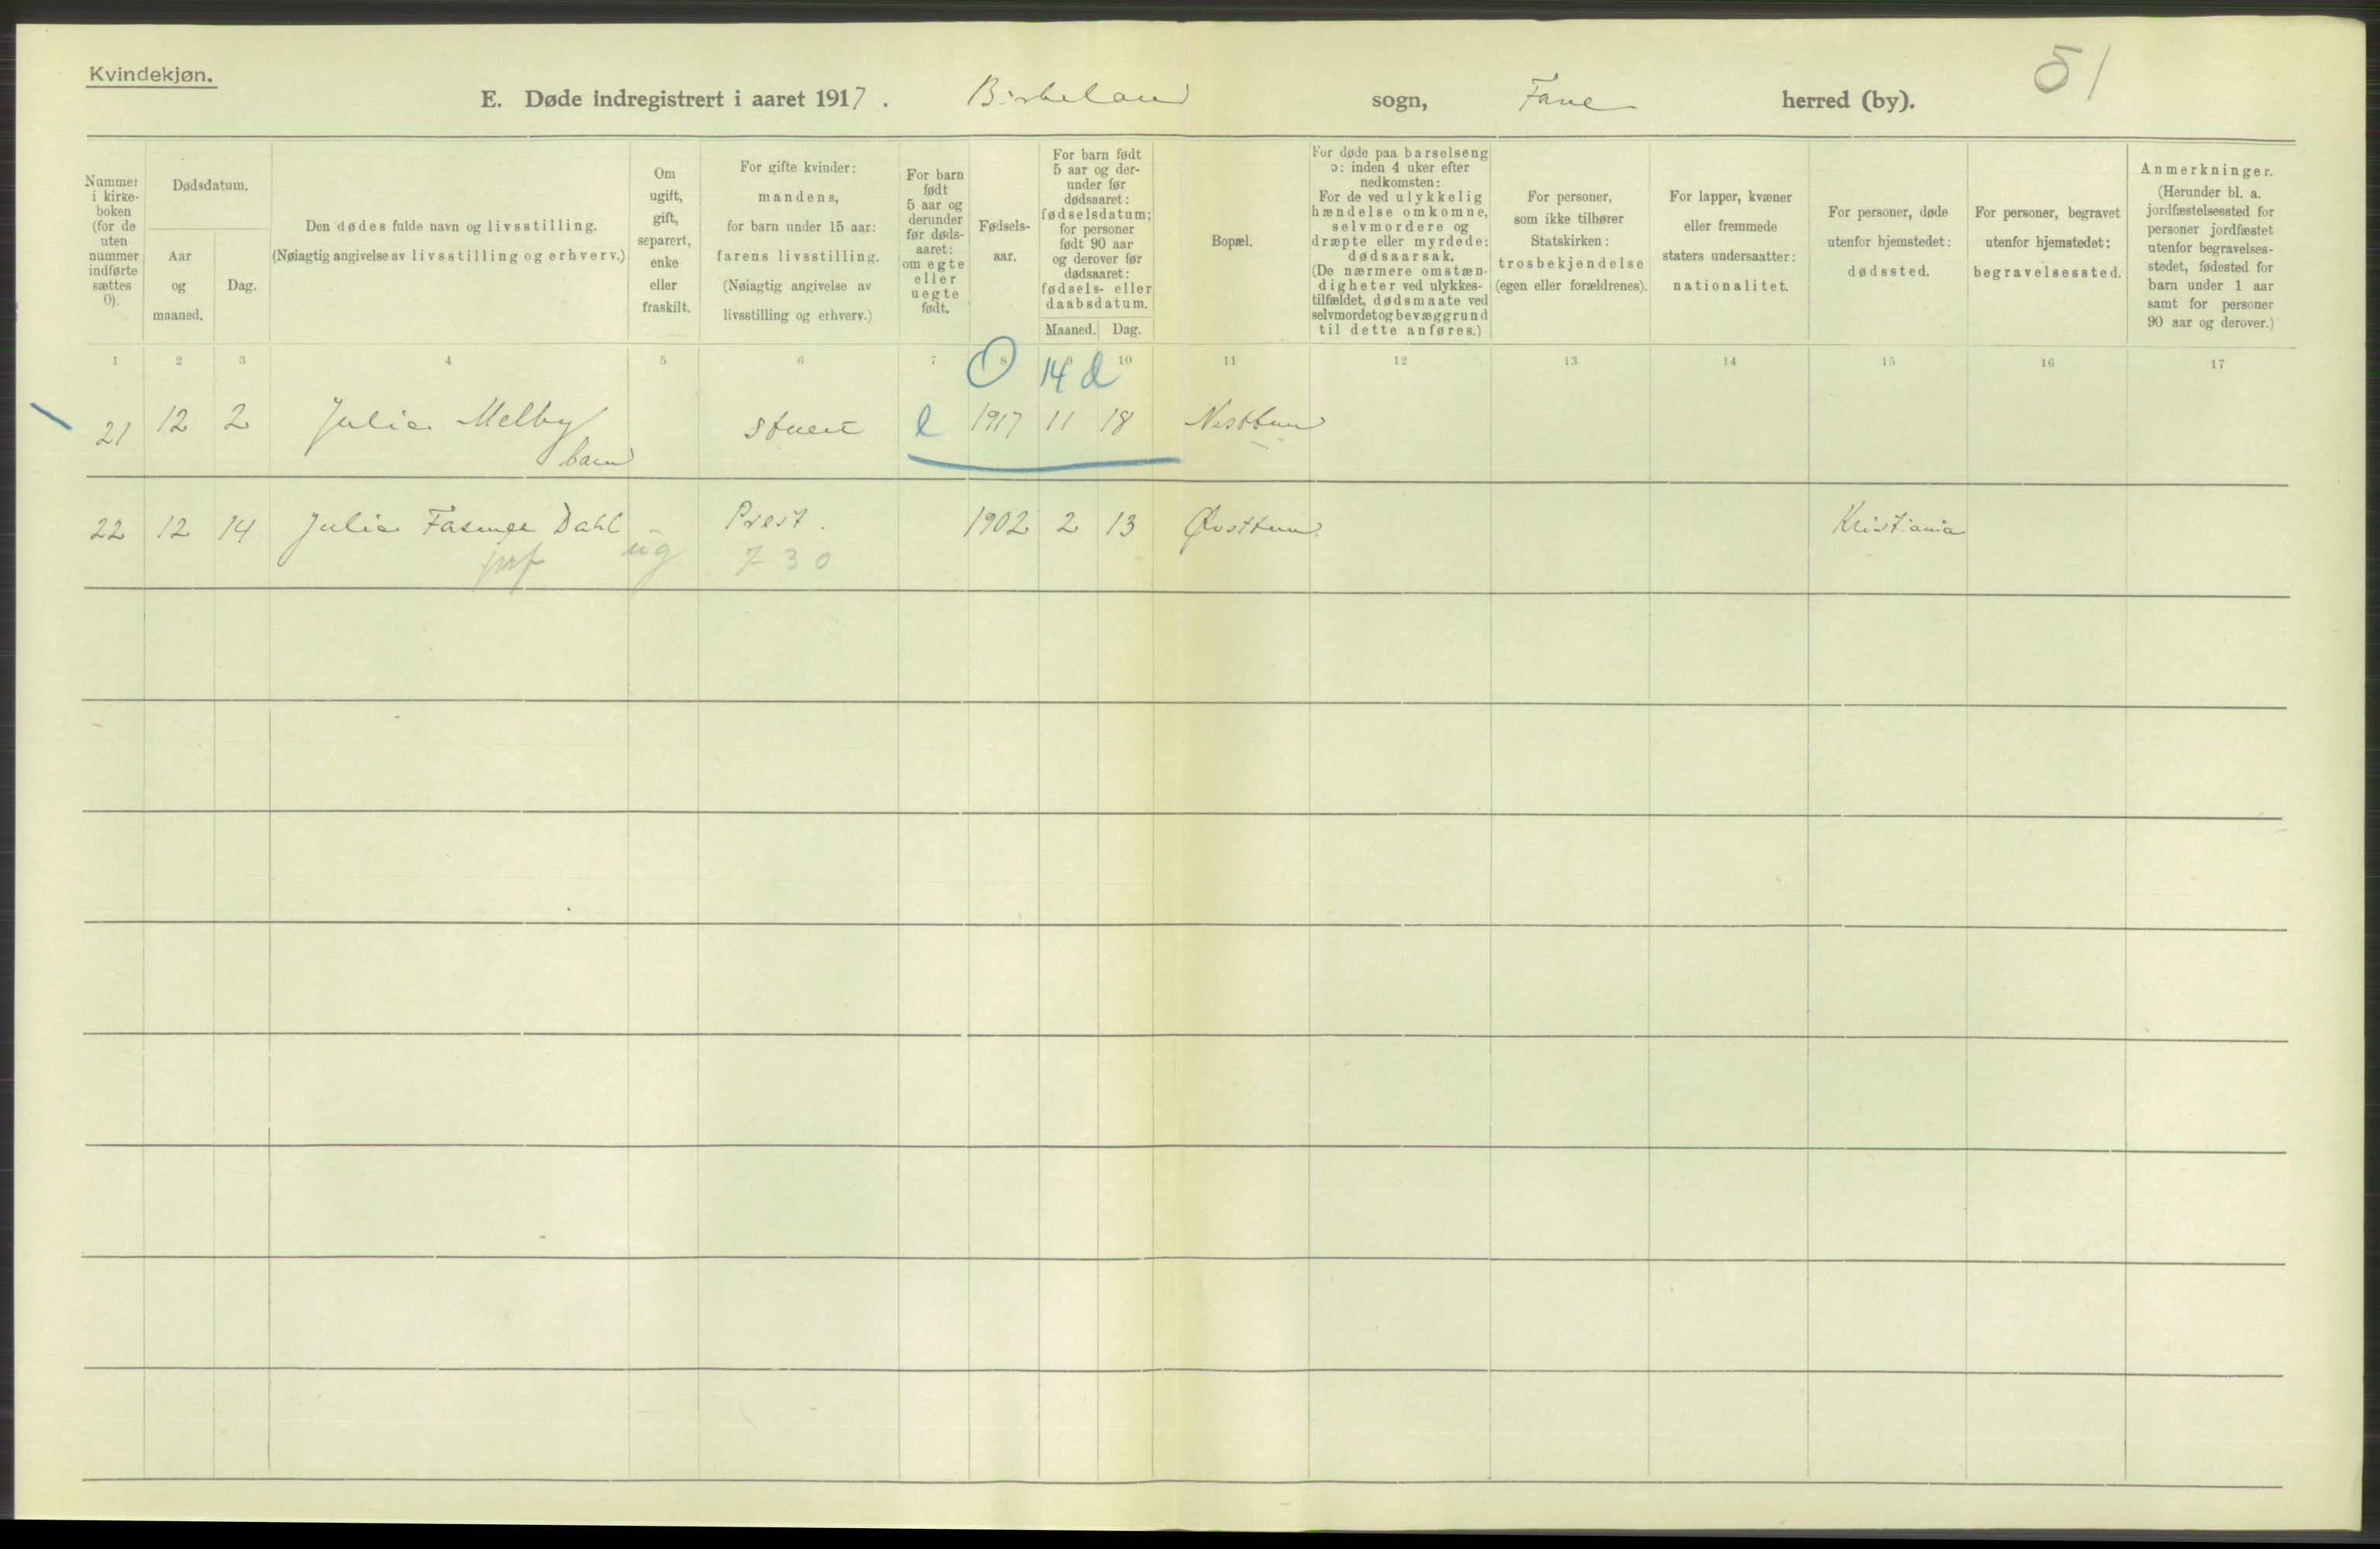 Kvindekjøn.
51
E. Døde indregistrert i aaret 1917. Birkeland sogn, Fane herred (by).
Nummer i kirke-boken (for de uten nummer indførte sættes 0).
Dødsdatum.
Aar og maaned.
Dag.
Den dødes fulde navn og livsstilling.
(Nøiagtig angivelse av livsstilling og erhverv.)
Om ugift, gift, separert, enke eller fraskilt.
For gifte kvinder:
mandens,
for barn under 15 aar:
farens livsstilling.
(Nøiagtig angivelse av
livsstilling og erhverv.)
For barn født 5 aar og derunder før døds-aaret: om egte eller uegte født.
Fødsels-aar.
For barn født
5 aar og der-
under før
dødsaaret:
fødselsdatum;
for personer
født 90 aar
og derover før
dødsaaret:
fødsels- eller
daabsdatum.
Maaned. Dag.
Bopæl.
For døde paa barselseng
ɔ: inden 4 uker efter
nedkomsten:
For de ved ulykkelig
hændelse omkomne,
selvmordere og
dræpte eller myrdede:
dødsaarsak.
(De nærmere omstæn-
digheter ved ulykkes-
tilfældet, dødsmaate ved
selvmordet og bevæggrund
til dette anføres.)
For personer,
som ikke tilhører
Statskirken:
trosbekjendelse
(egen eller forældrenes).
For lapper, kvæner
eller fremmede
staters undersaatter:
nationalitet.
For personer, døde
utenfor hjemstedet:
dødssted.
For personer, begravet
utenfor hjemstedet:
begravelsessted.
Anmerkninger.
(Herunder bl. a.
jordfæstelsessted for
personer jordfæstet
utenfor begravelses-
stedet, fødested for
barn under 1 aar
samt for personer
90 aar og derover.)
1 2 3 4 5 6 7 8 9 10 11 12 13 14 15 16 17
14 d
21 12 2 Julie Melby stuert e 1917 11 18 Nesttun
barn
22 12 14 Julie Dahl - Prest. 1902 2 13 Øvsttun. Kristiania
ug 730